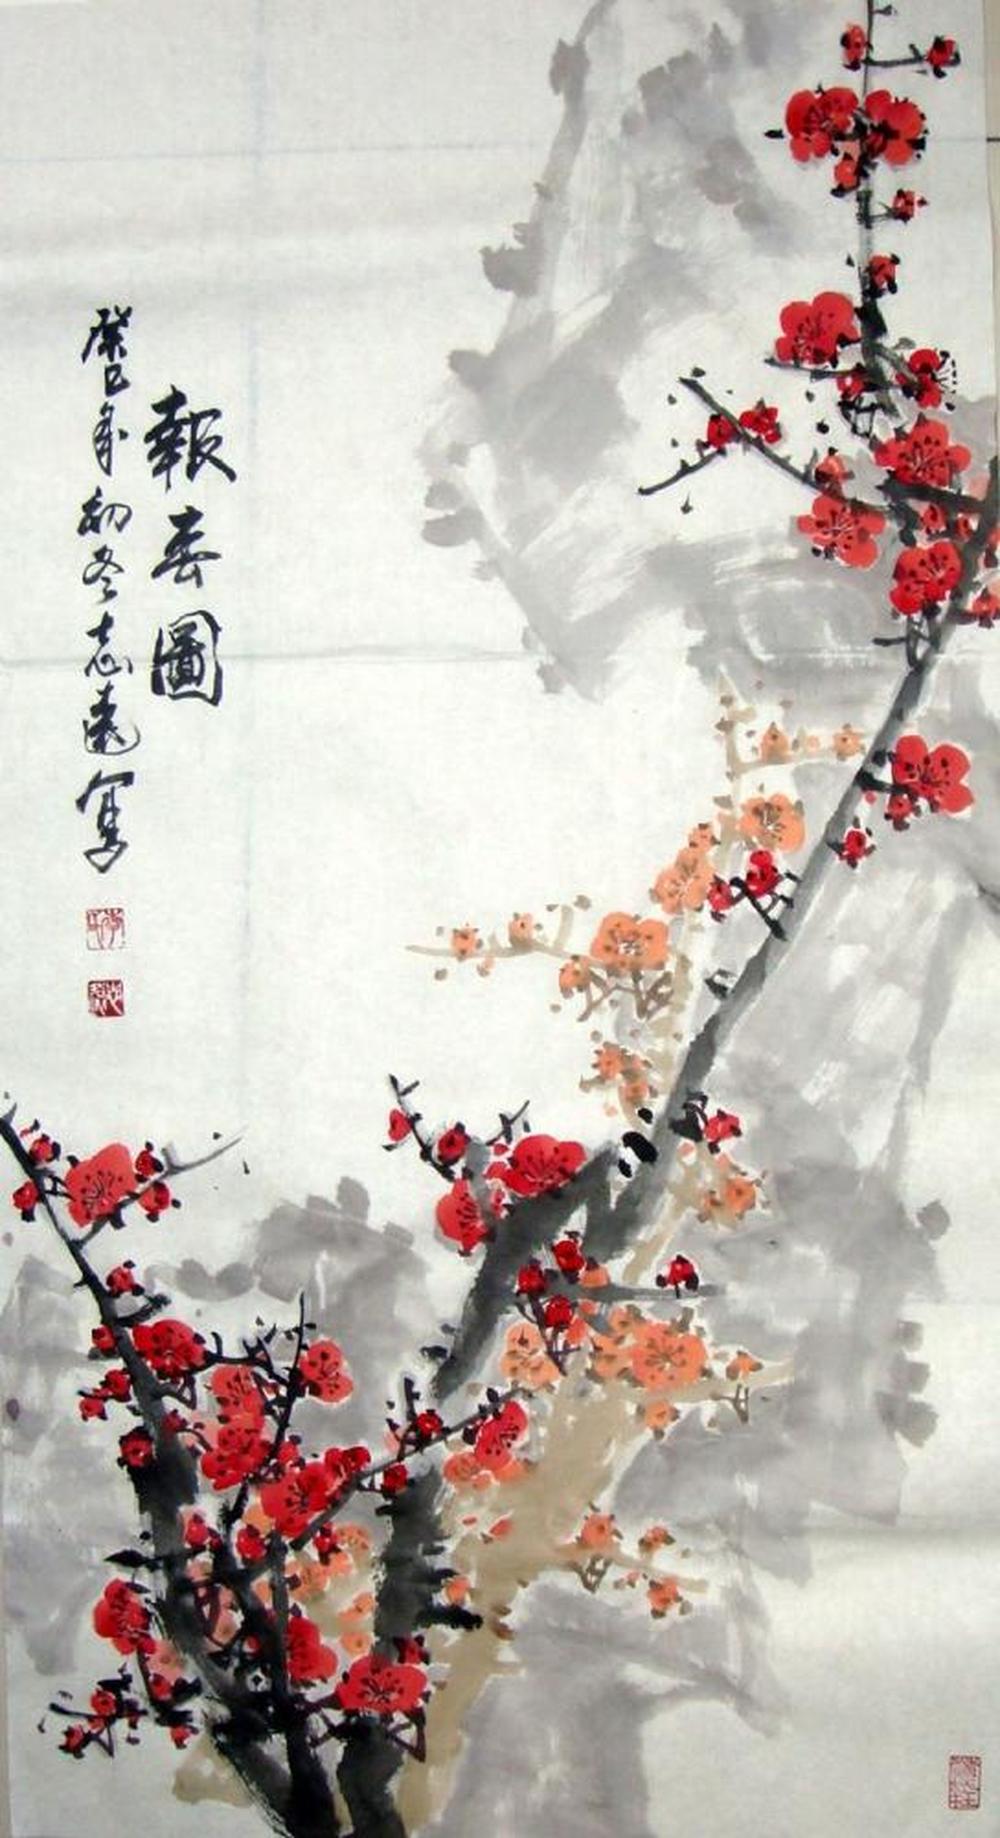 報春圖
癸巳年初冬志遠寫